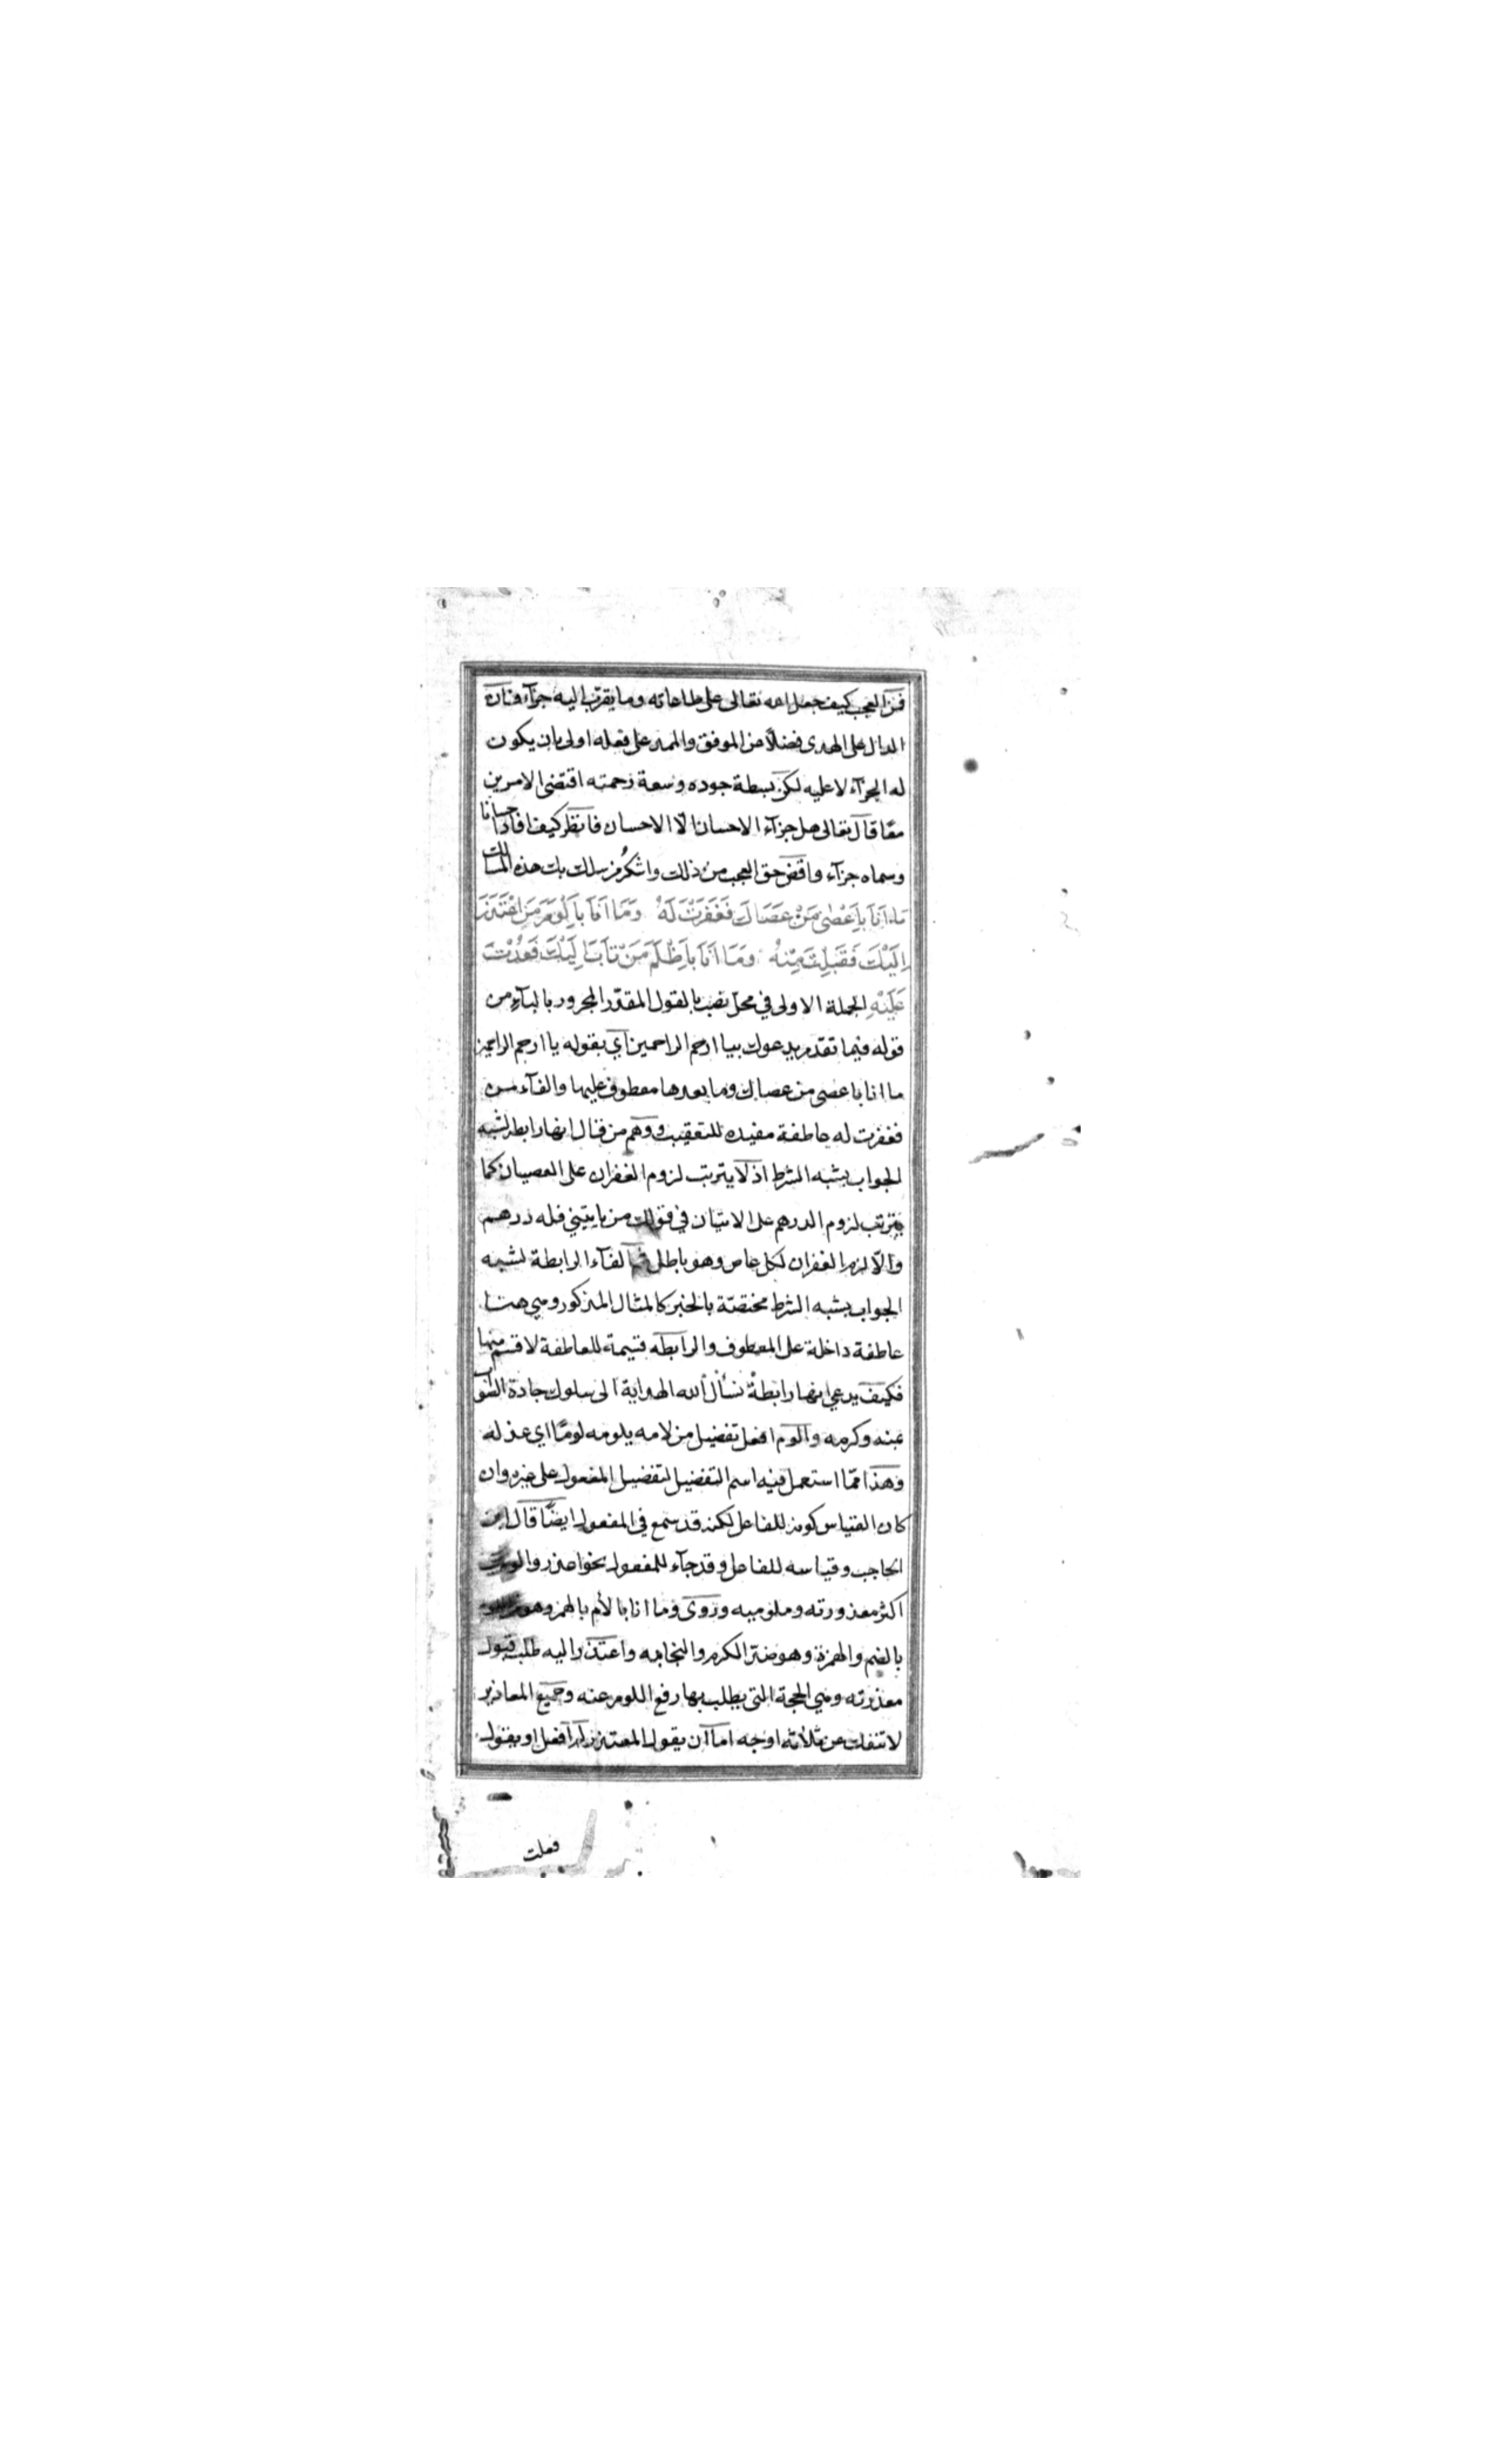 فمن العجب كيف جعل الله تعالى على طاعاته وما يقرب اليه جزآء فان
الدال على الهدى فضلاً عن الموفق والممد على فعله اولى بان يكون
له الجزآء لا عليه لكن بسطة جوده وسعة رحمته اقتضى الامرين
معًا قال تعالى هل جزآء الاحسان الّا الاحسان فانظر كيف افاد احسانا
وسماه جزآء واقض حق العجب من ذلك واشكُر من سلك بك هذه المسالك
مَا اَنَا بِاَعْصٰى مَنْ عَصَاكَ فَغَفَرْتَ لَهُ وَمَا اَنَا بِاَلْوَمِ مَنِ اعْتَذَرَ
اِلَيْكَ فَقَبِلْتَ مِنْهُ وَمَا اَنَا بِاَظْلَمِ مَنْ تَابَ اِلَيْكَ فَعُدْتَ
عَلَيْهِ الجملة الاولى في محل نصب بالقول المقدّر المجرور بالبآء من
قوله فيما تقدم يدعوك بيا ارحم الراحمين اي بقوله يا ارحم الراحمين
ما انا باعصى من عصاك وما بعدها معطوف عليها والفآء من
فغفرت له عاطفة مفيده للتعقيب ووهم من قال انها رابطة لشبه
الجواب بشبه الشرط اذ لا يترتب لزوم الغفران على العصيان كما
يترتب لزوم الدرهم على الاتيان في قولك من ياتيني فله درهم
والّا لزم الغفران لكل عاص وهو باطل ثم الفآء الرابطة لشبه
الجواب بشبه الشرط مختصّة بالخبر كالمثال المذكور وهي هنا
عاطفة داخلة على المعطوف والرابطه قسيمة للعاطفة لا قسم منها
فكيف يدعي انها رابطة نسأل الله الهداية الى سلوك جادة الصواب
بمنه وكرمه والوم افعل تفضيل من لامه يلومه لومًا اي عذله
وهذا ممّا استعمل فيه اسم التفضيل لتفضيل المفعول على غيره وان
كان القياس كونه للفاعل لكنه قد سمع في المفعول ايضًا قال ابن
الحاجب وقياسه للفاعل وقد جآء للمفعول نحو اعذر والوم
اكثر معذورته وملوميته وروى وما انا بالأم بالهمز وهو من اللؤم
بالضم والهمزة وهو ضد الكرم والنجابه واعتذر اليه طلب قبول
معذرته وهي الحجة التي يطلب بها رفع اللوم عنه وجميع المعاذير
لا تنفك عن ثلاثه اوجه اما ان يقول المعتذر لم افعل او يقول
فعلت